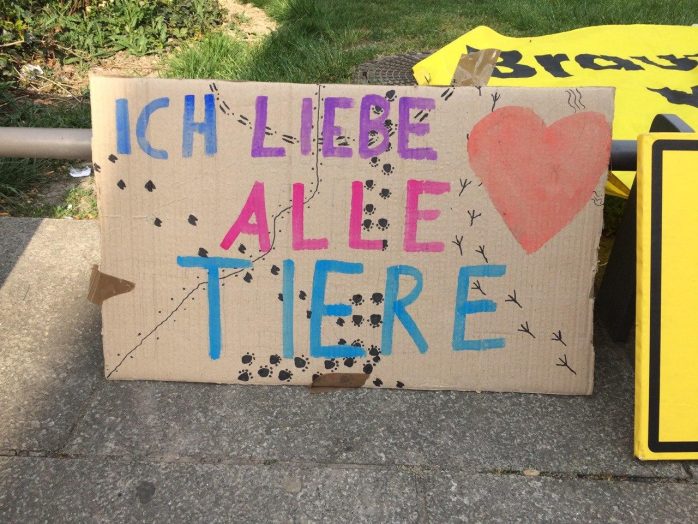 ICH LIEBE
ALLE
TIERE